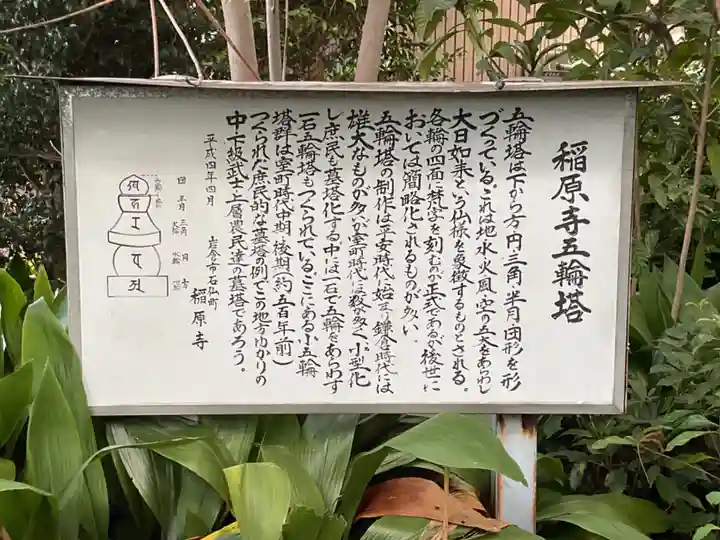 稲原寺五輪塔
五輪塔は下から方、円、三角、半月、団形を形
づくっている。これは地、水、火、風、空の五大をあらわし
大日如来という仏様を象徴するものとされる。
各輪の四面に梵字を刻むのが正式であるが後世に
おいては簡略化されるものが多い。
五輪塔の制作は平安時代に始まり鎌倉時代には
雄大なものが多いが室町時代は数が多く、小型化
し庶民も墓塔化する。中には一石で五輪をあらわす
一石五輪塔もつくられている。ここにある小五輪
塔群は室町時代中期、後期(約五百年前)
つくられた庶民的な墓塔例でこの地方ゆかりの
中下級武士、上層農民達の墓塔であろう。
平成四年四月
岩倉市石仏町
稲原寺
団 半月 三角 円 方
火輪 水輪